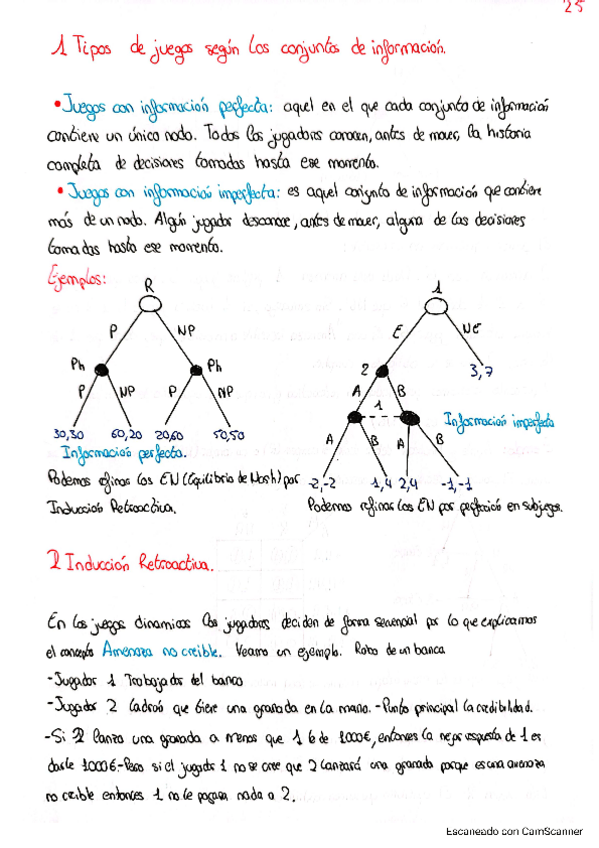 25
1 Tipos de juegos según los conjuntos de información.
• Juegos con información perfecta: aquel en el que cada conjunto de información
contiene un único nodo. Todos los jugadores conocen, antes de mover, la historia
completa de decisiones tomadas hasta ese momento.
• Juegos con información imperfecta: es aquel conjunto de información que contiene
más de un nodo. Algún jugador desconoce, antes de mover, alguna de las decisiones
tomadas hasta ese momento.
Ejemplos:
R
P NP
Ph Ph
P NP P NP
30,30 60,20 20,60 50,50
Información perfecta.
Podemos refinar los EN (Equilibrio de Nash) por
Inducción Retroactiva.
1
E NE
2 3,7
A B
1
Información imperfecta
A B A B
-2,-2 1,4 2,4 -1,-1
Podemos refinar los EN por perfección en subjuegos.
2 Inducción Retroactiva.
En los juegos dinamicos los jugadores deciden de forma secuencial por lo que explicamos
el concepto Amenaza no creible. Veamo un ejemplo. Robo de un banco
-Jugador 1 Trabajador del banco
-Jugador 2 Ladrón que tiene una granada en la mano. -Punto principal la credibilidad.
-Si 2 lanza una granada a menos que 1 le de 1000€, entonces la mejor respuesta de 1 es
darle 1000€-Pero si el jugador 1 no se cree que 2 lanzará una granada porque es una amenaza
no creible entonces 1 no le pagara nada a 2.
Escaneado con CamScanner